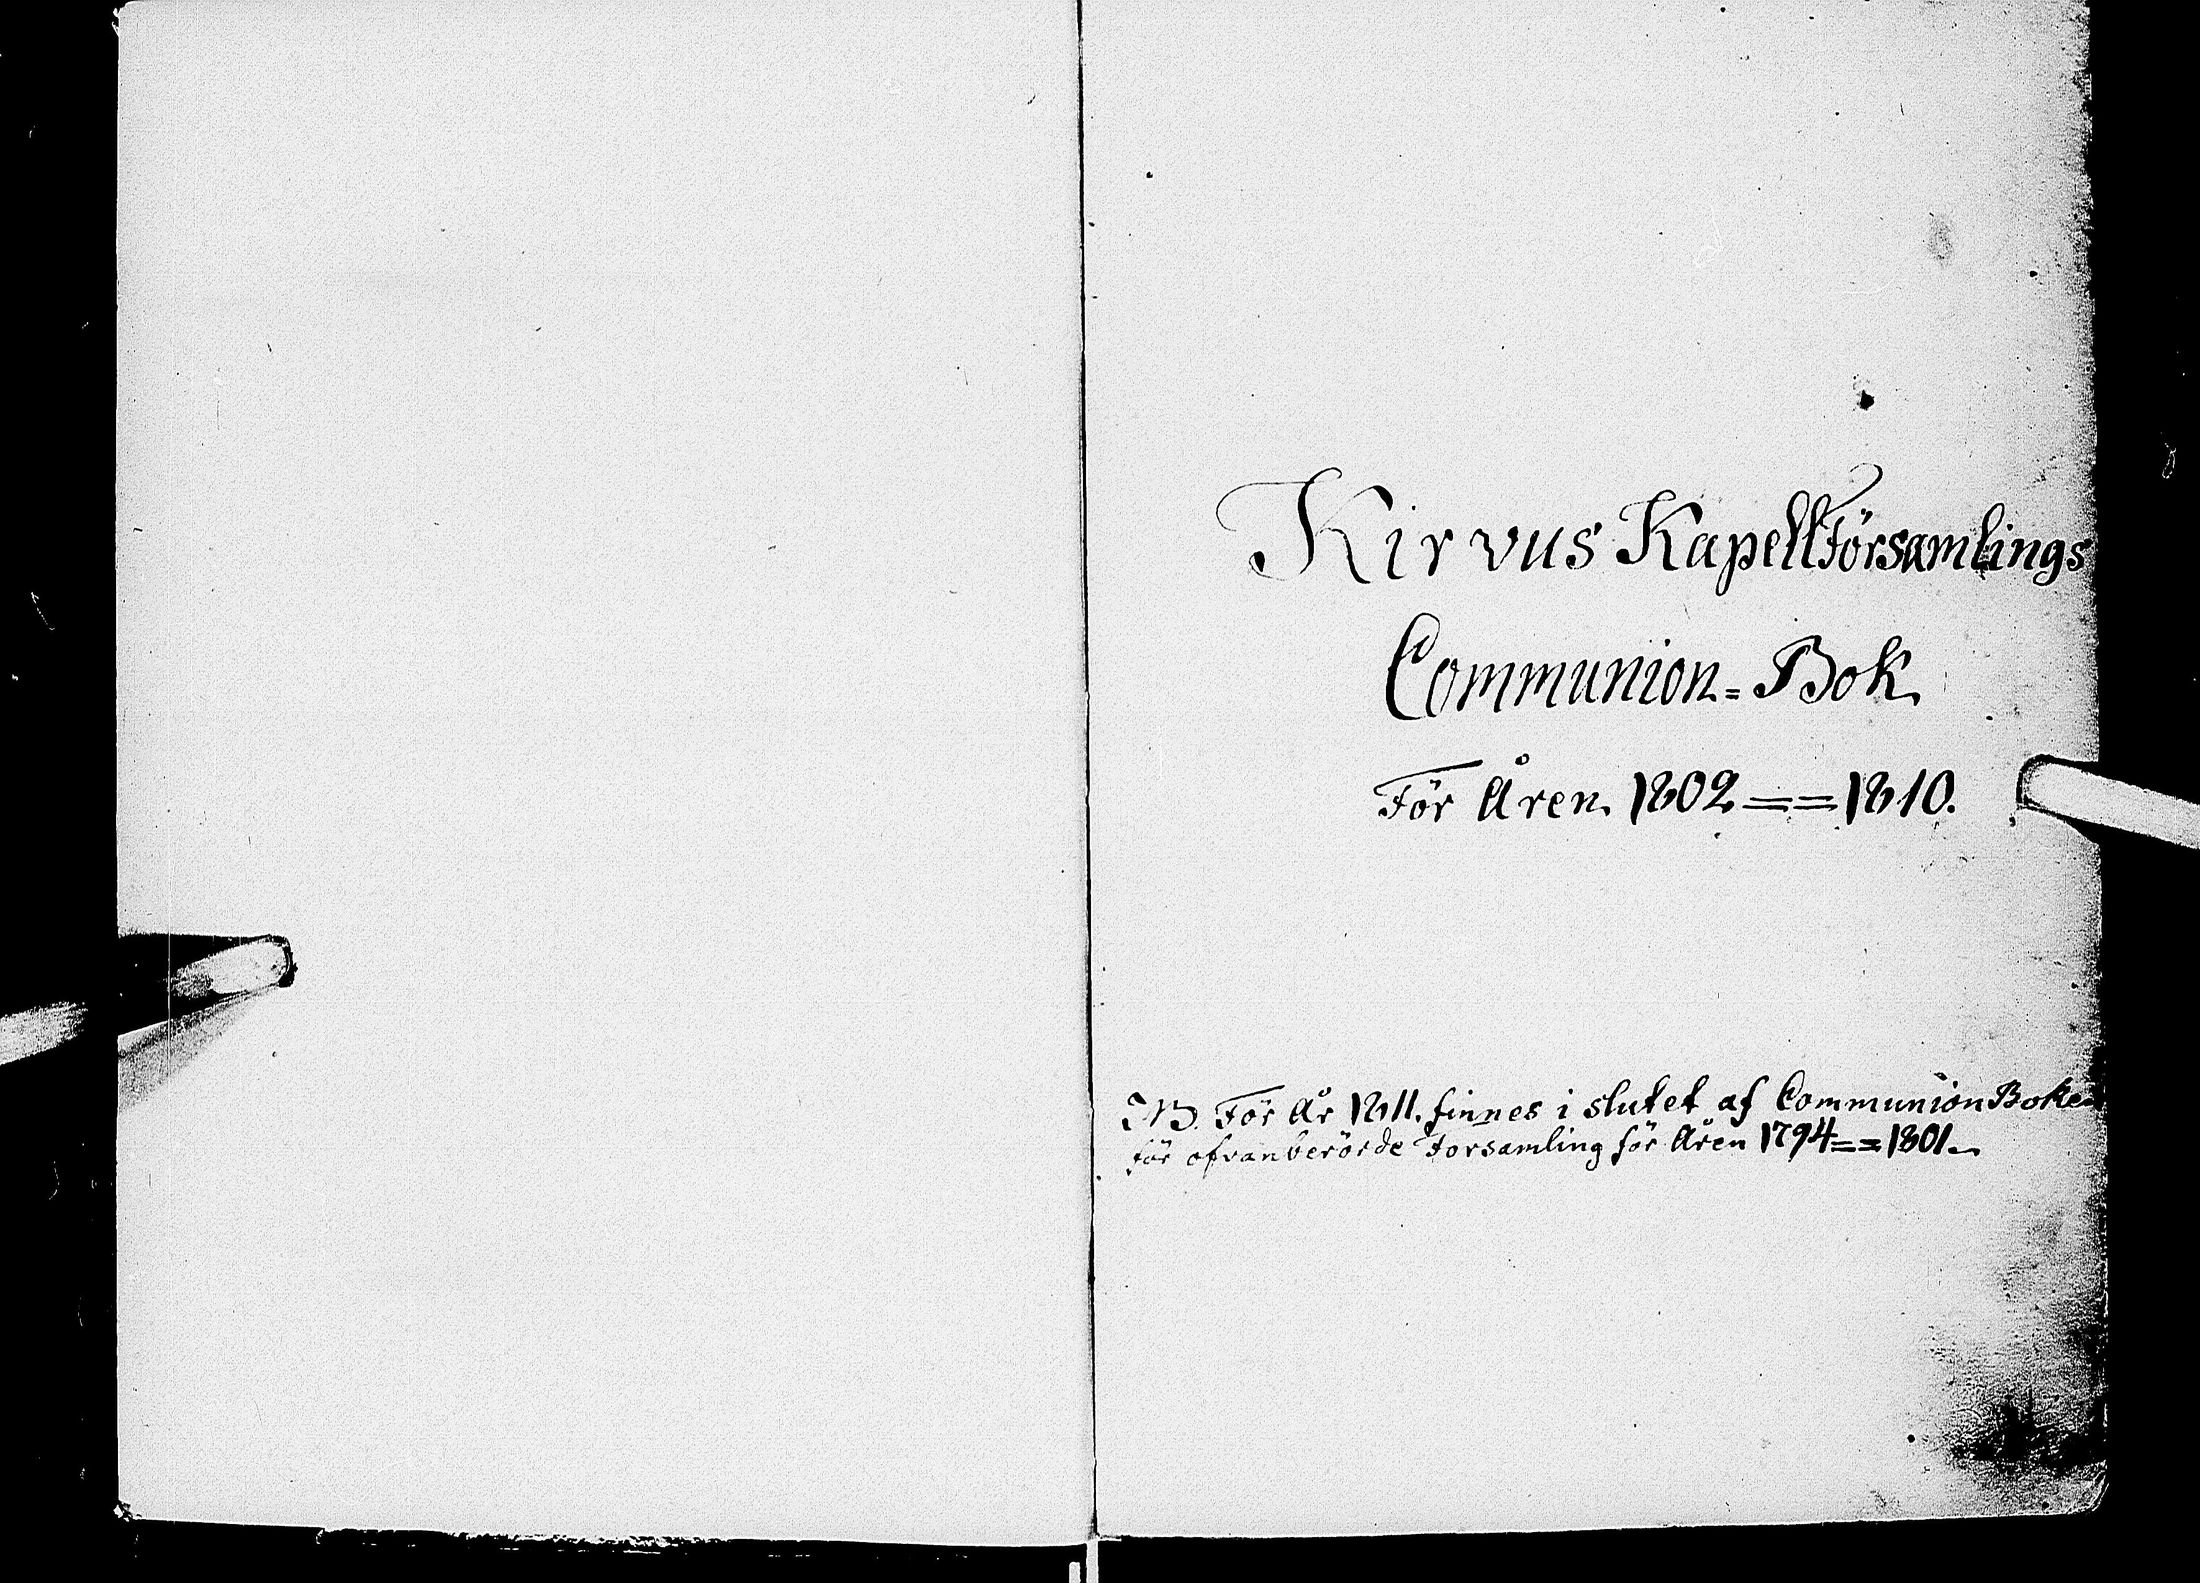 Kirvus Kapellförsamlings
Communion=Bok
För Åren 1802 == 1810.
NB. För År 1811. finnes i slutet af Communion Boken
för ofvanberörde Forsamling för Åren 1794 == 1801.